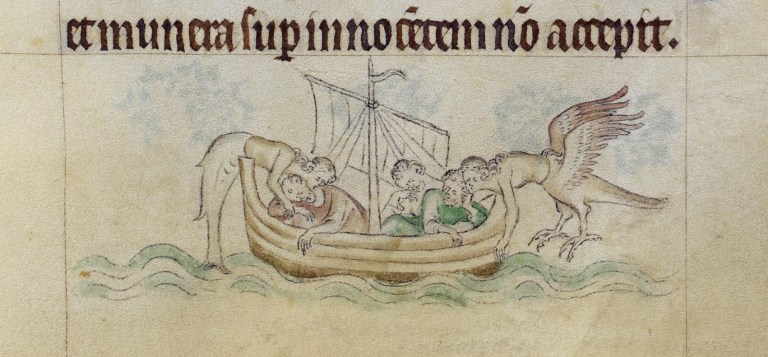 et munera sup innocētem nō accepit.